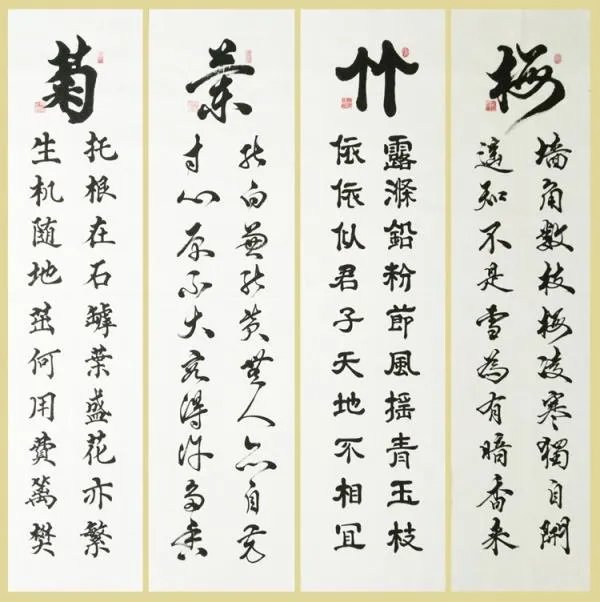 梅
墙角数枝梅凌寒獨自開
遥知不是雪為有暗香来
竹
露滌鉛粉節風摇青玉枝
依依似君子无地不相冝
蘭
能白兼能黄無人亦自芳
寸心原不大容得许多香
菊
托根在石罅葉盛花亦繁
生机随地茁何用費篱樊